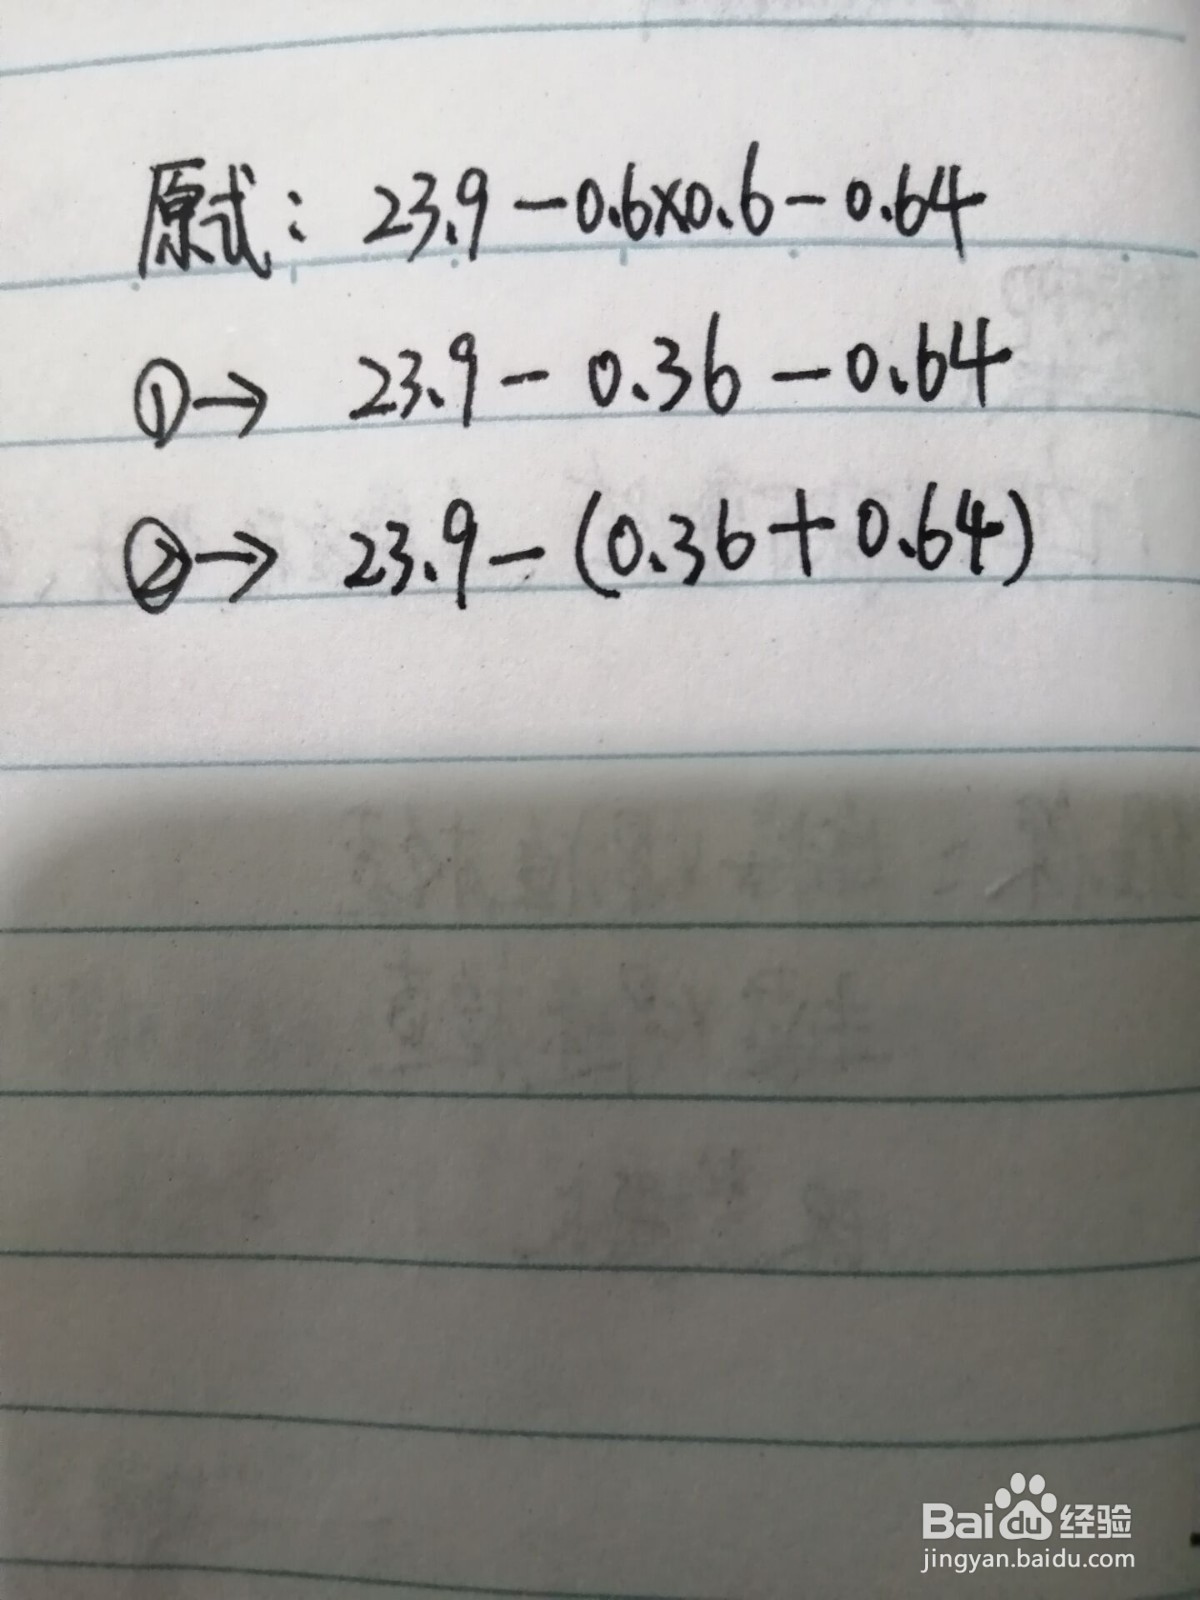 原式: 23.9-0.6×0.6-0.64
①→ 23.9-0.36-0.64
②→ 23.9-(0.36+0.64)
Baidu经验
jingyan.baidu.com